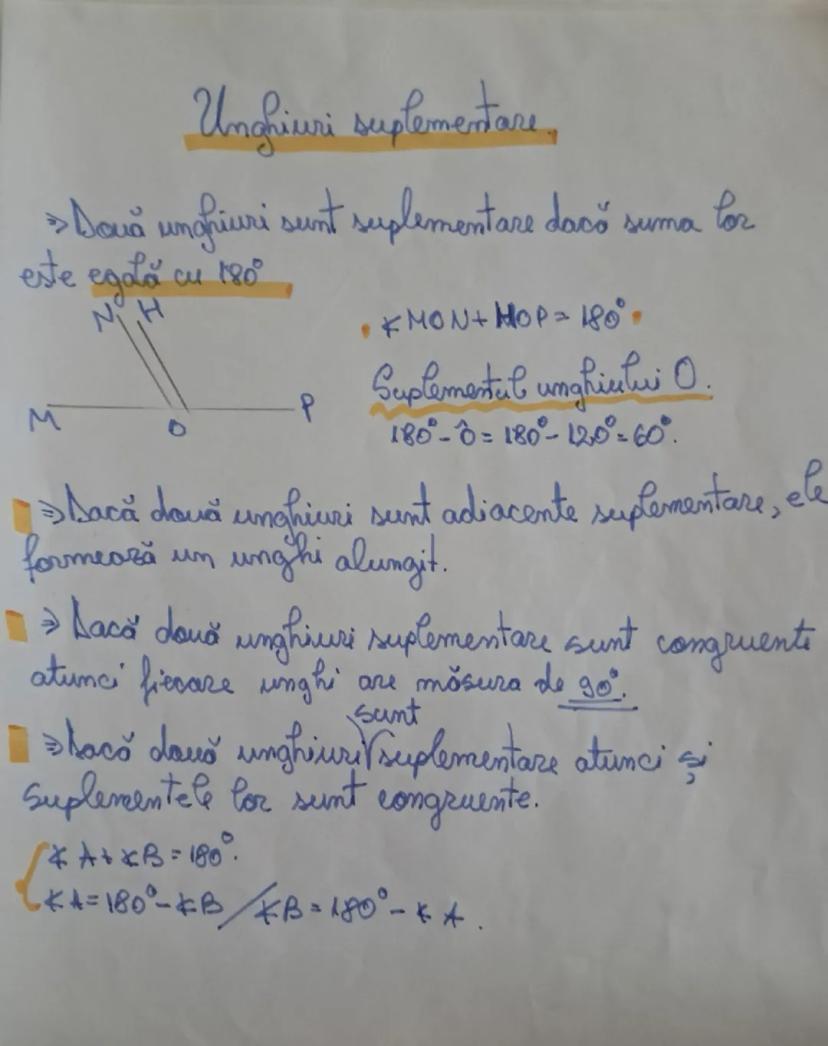 Unghiuri suplementare.
⇒ Două unghiuri sunt suplementare dacă suma lor
este egală cu 180°
N H
M O P
∢MON+HOP=180°
Suplementul unghiului O.
180°-Ô=180°-120°=60°.
⇒ Dacă două unghiuri sunt adiacente suplementare, ele
formează un unghi alungit.
⇒ Dacă două unghiuri suplementare sunt congruente
atunci fiecare unghi are măsura de 90°.
sunt
⇒ Dacă două unghiuri suplementare atunci și
suplementele lor sunt congruente.
∢A+∢B=180°.
∢A=180°-∢B/∢B=180°-∢A.